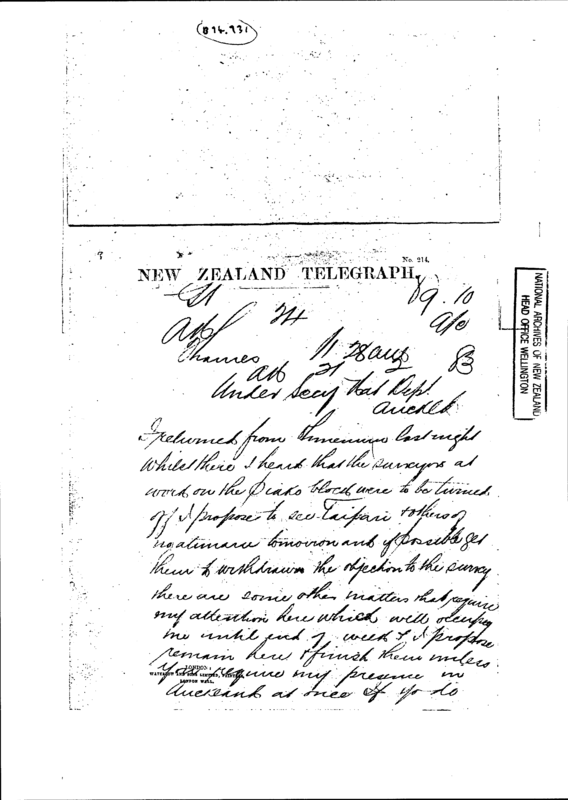 B 74.731
No. 214.
NEW ZEALAND TELEGRAPH.
24
9.10
Thames 11 28 aug
Under Secy Nat Dept
Auckld
I returned from last night
whilst there I heard that the surveyors at
work on the Piako block were to be turned
off I propose to see Taipari & others of
ngatimaru tomorrow and if possible get
them to withdrawn the objection to the survey
there are some other matters that require
my attention here which will occupy
me until end of week & I propose
remain here & finish them unless
you require my presence in
LONDON:
WATERLOW AND SONS LIMITED, PRINTERS,
LONDON WALL.
Auckland at once If yo do
NATIONAL ARCHIVES OF NEW ZEALAND
HEAD OFFICE WELLINGTON